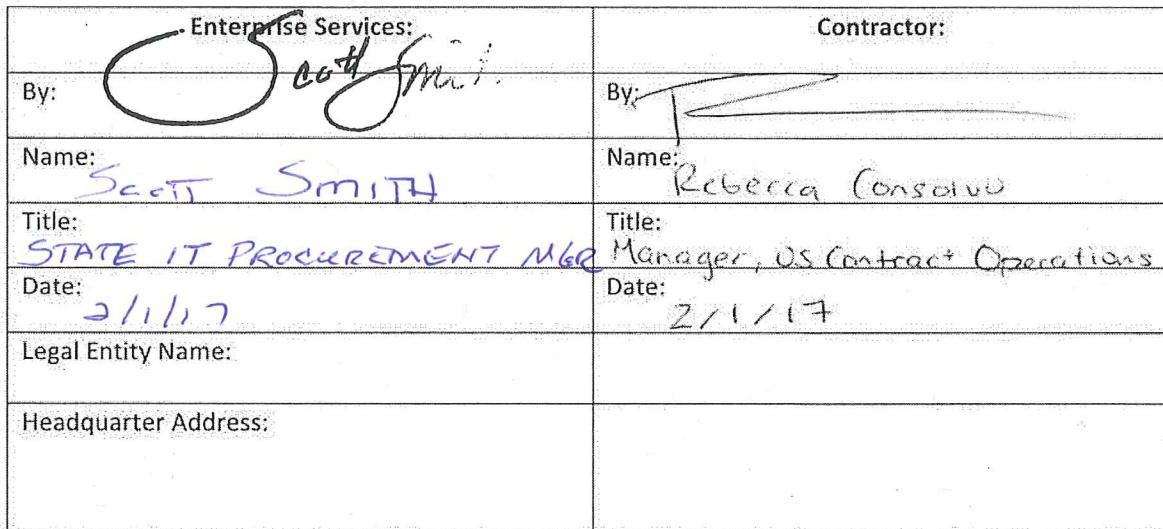 Enterprise Services: Contractor:
By: Scott Smith By:
Name: Scott SMITH Name: Rebecca Consolvo
Title: STATE IT PROCUREMENT MGR Title: Manager, US Contract Operations
Date: 2/1/17 Date: 2/1/17
Legal Entity Name:
Headquarter Address: